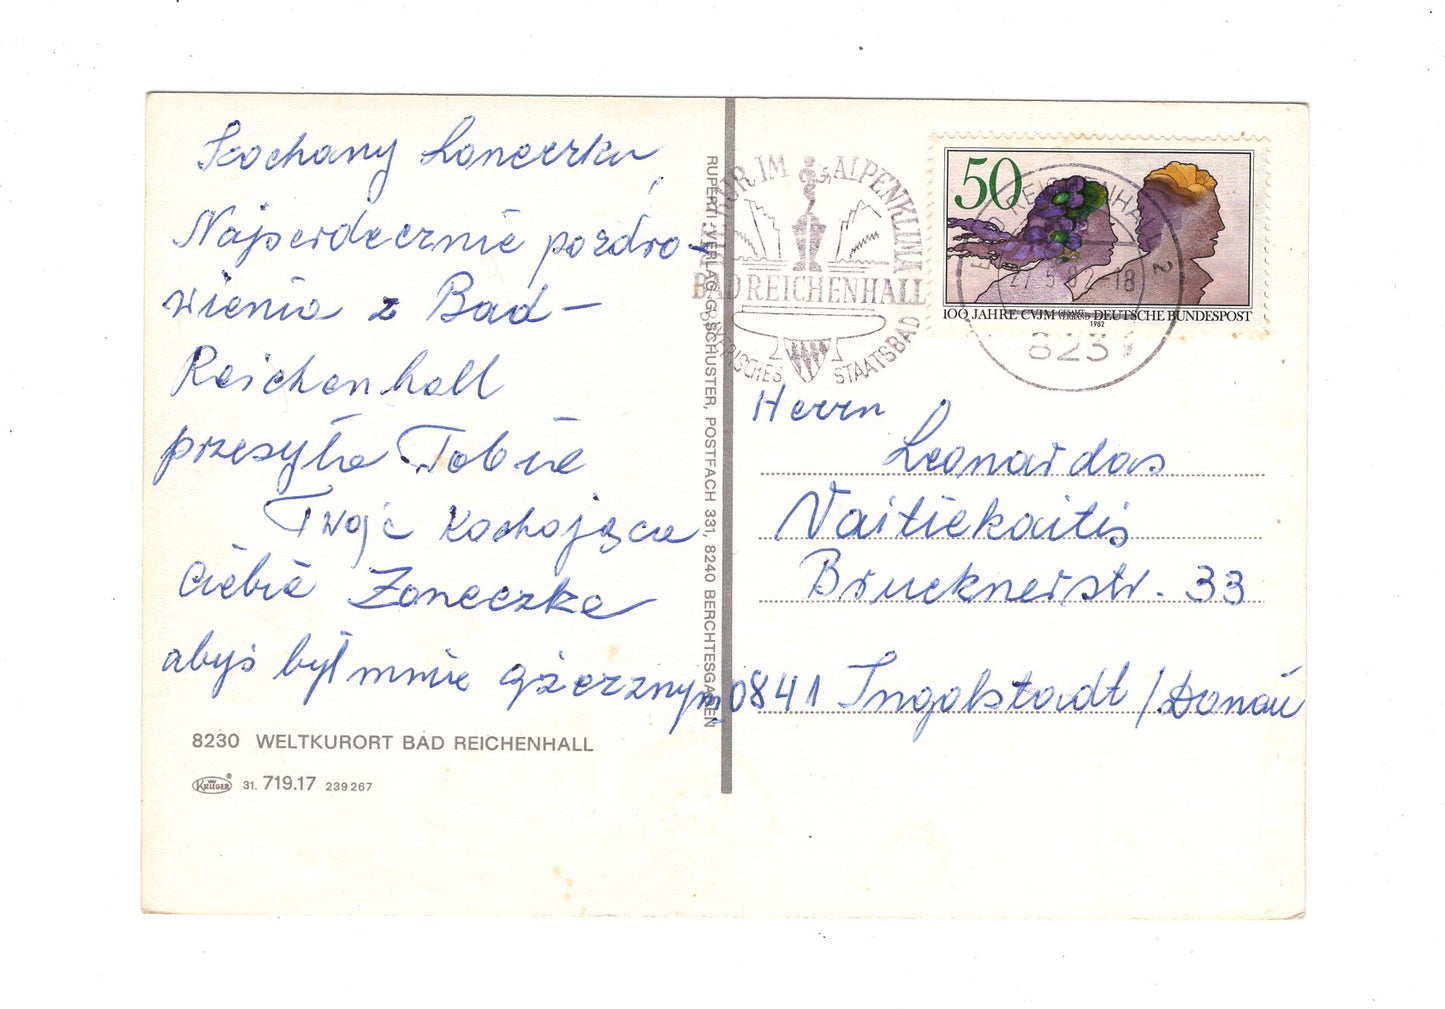 Kochany Loneczku,
Najserdecznie pozdro-
wienia z Bad-
Reichenhall
przesyła Tobie
Twoje kochająca
Ciebie Zoneczka
abyś był mnie gżerznym
8230 WELTKURORT BAD REICHENHALL
KRÜGER® 31. 719.17 239267
RUPERTI-VERLAG G. SCHUSTER, POSTFACH 331, 8240 BERCHTESGADEN
KUR IM ALPENKLIMA
BAD REICHENHALL
BAYERISCHES STAATSBAD
50
100 JAHRE CVJM GESAMTVERBAND DEUTSCHE BUNDESPOST
1982
BAD REICHENHALL 2
27.5.82-18
8230
Herrn
Leonardas
Vaitiekaitis
Brucknerstr. 33
0841 Ingolstadt/Donau